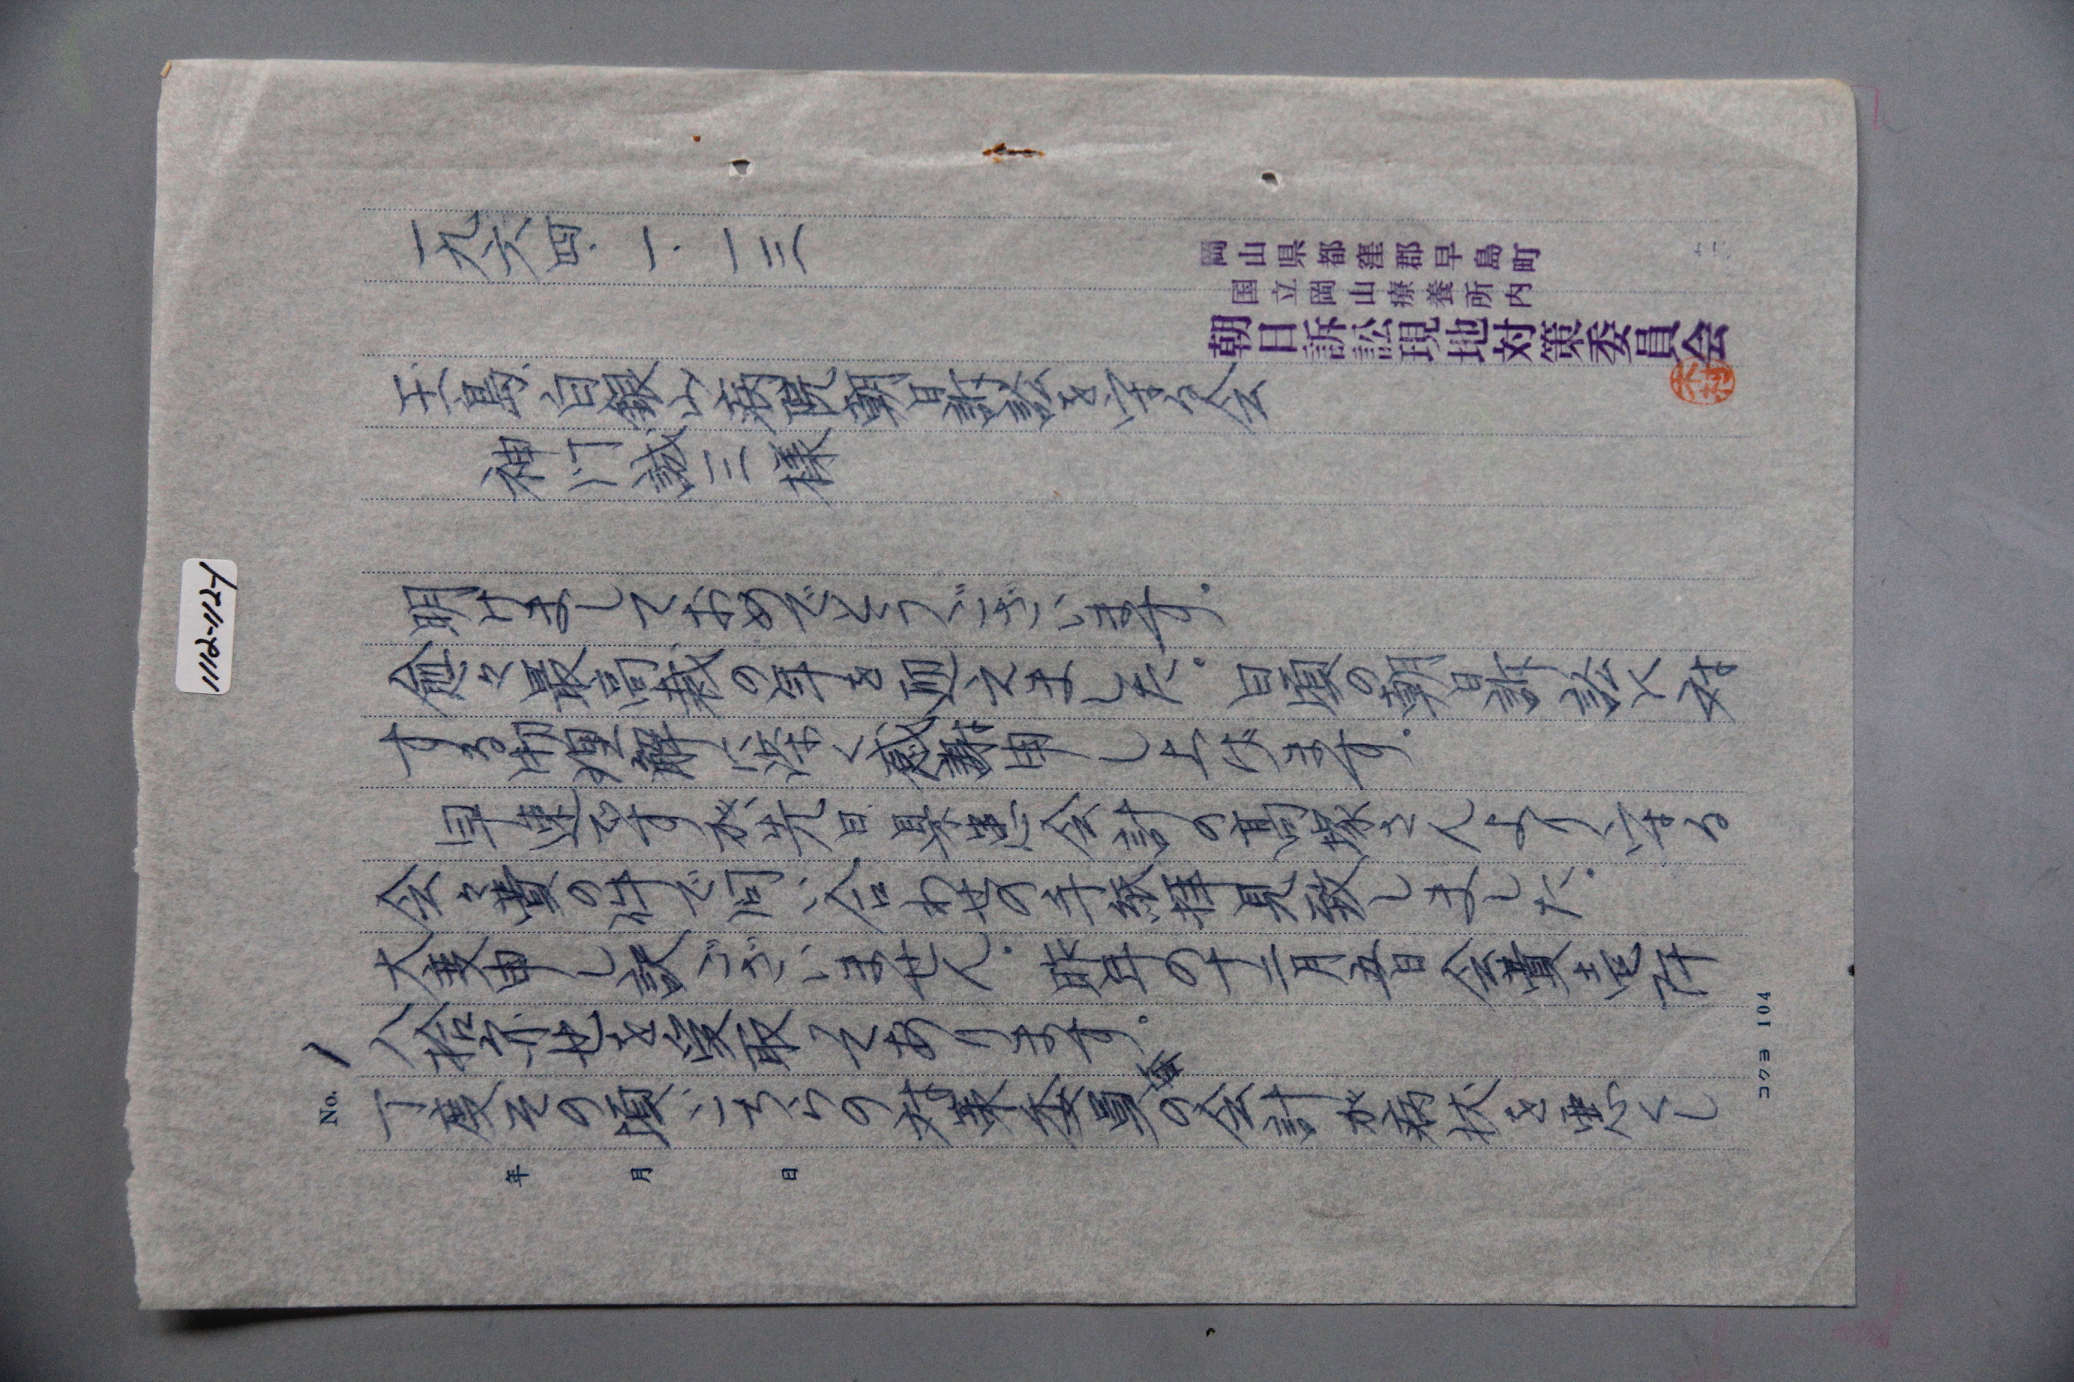 一九六四・一・一三
岡山県都窪郡早島町
国立岡山療養所内
朝日訴訟現地対策委員会
木村
広島・白銀山病院朝日訴訟を守る会
神門誠三様
明けましておめでとうございます。
愈々最高裁の年を迎えました。日頃の朝日訴訟に対
する御理解に深く感謝申し上げます。
早速ですが先日県患会計の高塚さんより守る
会々費の件で問い合わせの手紙拝見致しました。
大変申し訳ございません。昨年の十二月五日会費
を受取ております。
丁度その頃こちらの対策委員会の会計が病状を悪くし
年 月 日
No. 1
コクヨ 104
1112-11-21-1